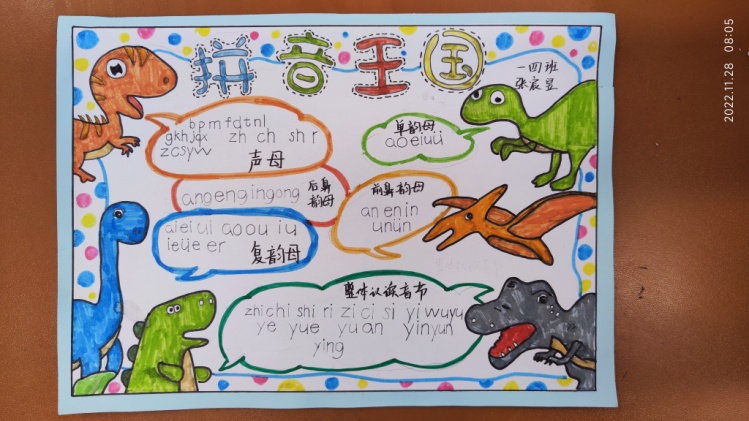 拼音王国
一四班
张宸昱
bpmfdtnl
gkhjqx zh ch sh r
zcsyw
声母
单韵母
aoeiuü
angengingong
后鼻
韵母
前鼻韵母
an en in
unün
aieiui aoou iu
ieüe er
复韵母
整体认读音节
zhichi shi ri zi ci si yi wuyu
ye yue yuan yinyun
ying
2022.11.28 08:05